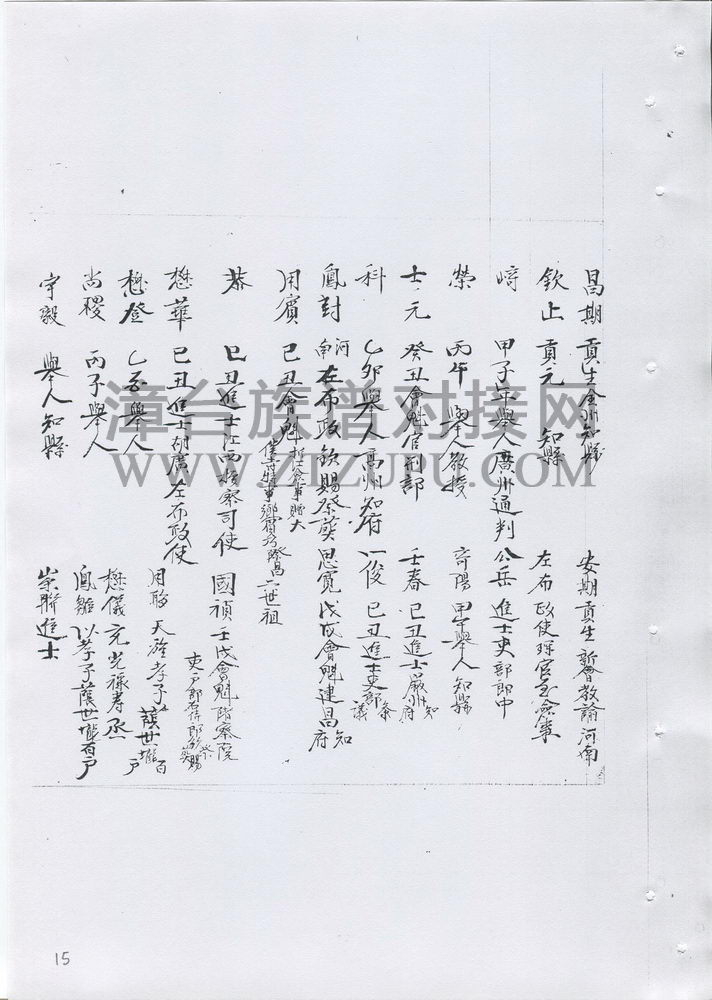 昌期 貢生金州知縣 安期貢生新會教諭河南
欽止 貢元 知縣 左布政使 官至僉事
崎 甲子 舉人廣州通判 公岳 進士吏部郎中
榮 丙午 舉人教授 奇陽 甲午舉人 知縣
士元 癸丑會魁官刑部 壬春 己丑進士嚴州知府
科 乙卯舉人高州知府 一俊 己丑進士吏部 議
鳳對 河南左布政欽賜祭葬 思寬 戊戌會魁建昌知府
用賓 己丑會魁 六世祖
恭 己丑進士江西按察司使 國禎 壬戌會魁 察院
吏戶部右侍郎 賜祭
懋華 己丑進士胡廣左布政使 用聯 天旌孝子 蔭世 百戶
懋登 乙 舉人 懋儀 光祿寺丞
尚稷 丙子舉人 鳳雛 以孝子蔭世 百戶
宇毅 舉人知縣 崇聯進士
漳台族谱对接网
WWW.ZTZUPU.COM
15